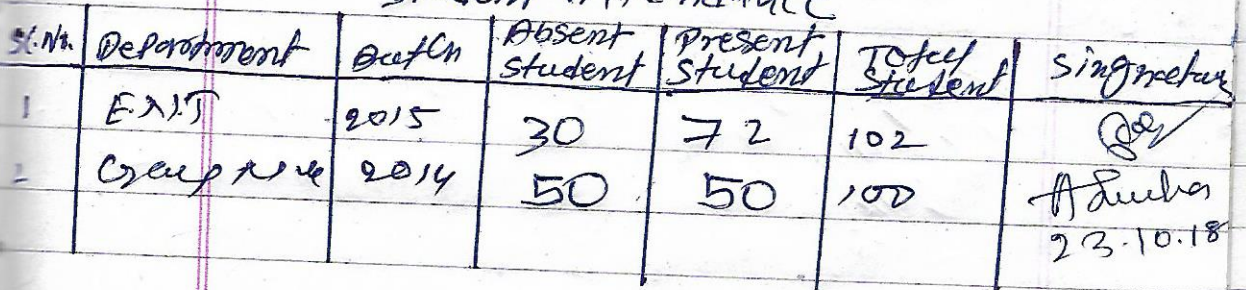 Sl.No. Department Batch Absent Student Present Student Total Student Singnetur
1 E.N.T 2015 30 72 102
2 2014 50 50 100
23.10.18